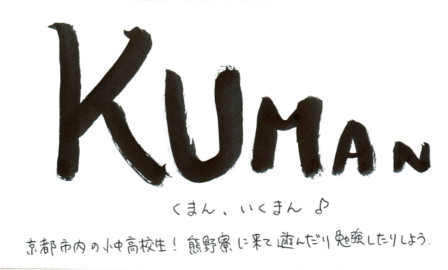 KUMAN
くまん、いくまん♪
京都市内の小中高校生！熊野寮に来て遊んだり勉強したりしよう